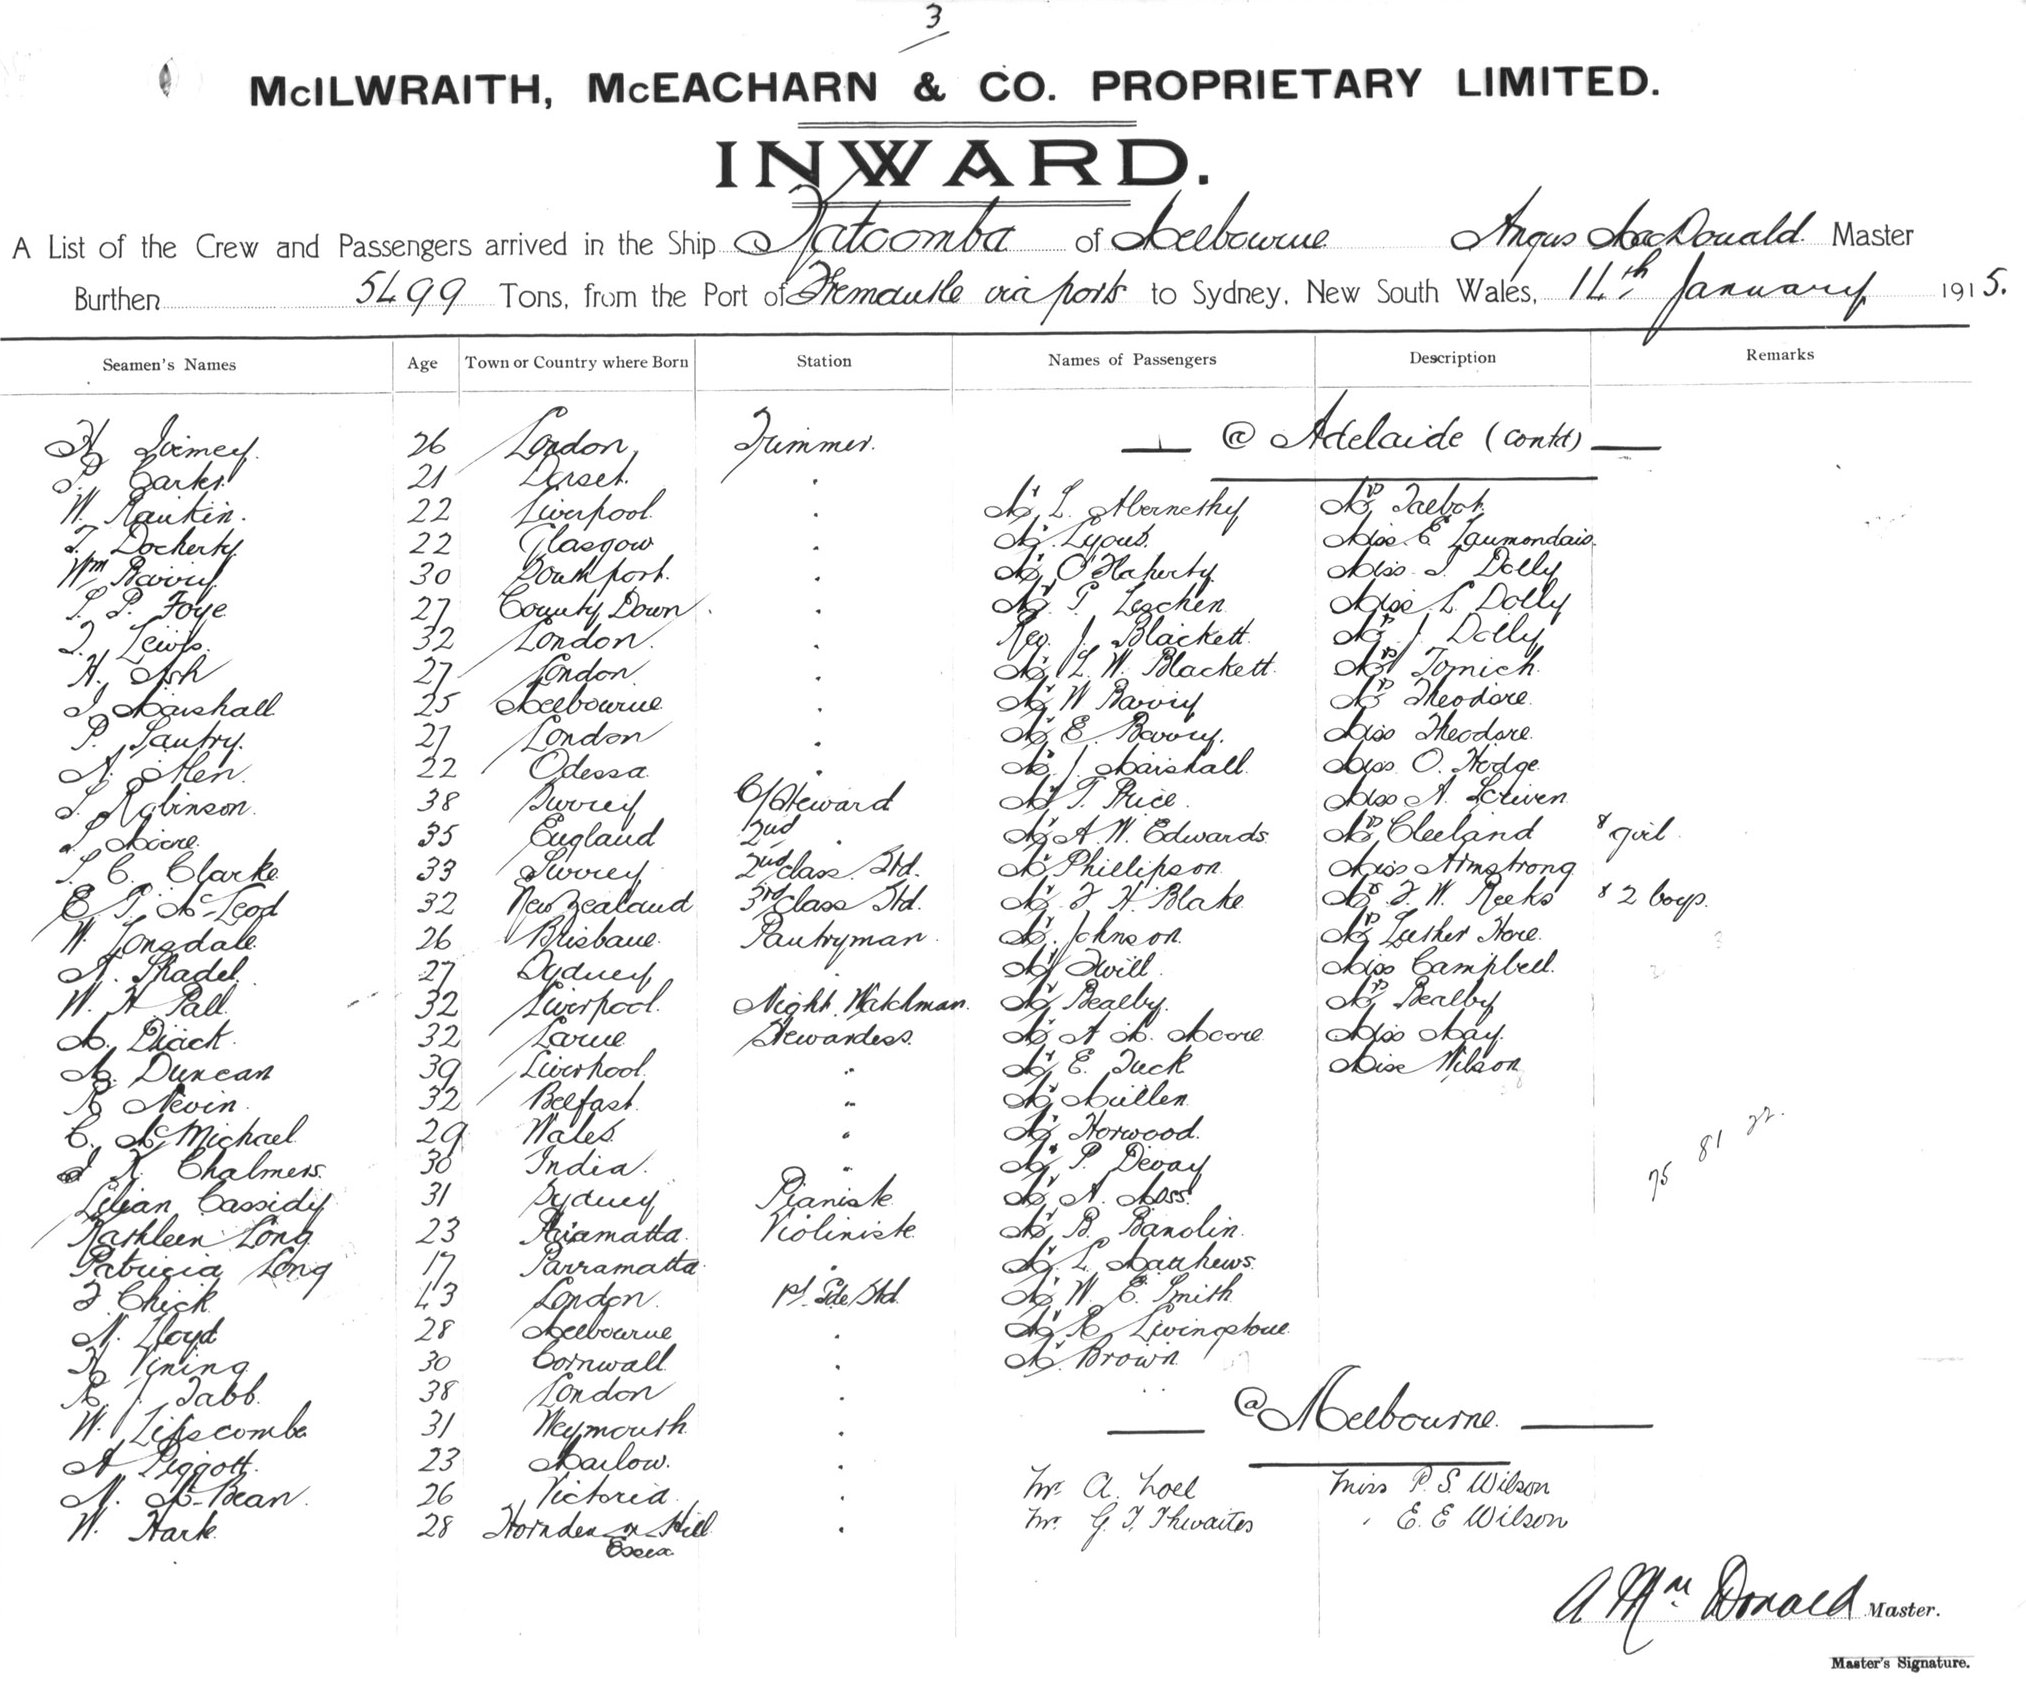 3
McILWRAITH, McEACHARN & CO. PROPRIETARY LIMITED.
INWARD.
A List of the Crew and Passengers arrived in the Ship Katoomba of Melbourne Angus MacDonald Master
Burthen 5499 Tons, from the Port of Fremantle via ports to Sydney, New South Wales, 14th January 1915.
Seamen's Names Age Town or Country where Born Station Names of Passengers Description Remarks
H. Ivimey. 26 London Trimmer. @ Adelaide (contd)
21 Dorset.
W. Rankin. 22 Liverpool. Mr L. Abernethy Mrs Talbot.
T. Docherty. 22 Glasgow Mr Lyons. Miss E. Laumondais.
Wm Barry. 30 Southport. Mr O'Flaherty. Miss I. Dolly
P. Foye 27 County Down Mr T. Leschen. Miss L. Dolly
Lewis. 32 London. Rev. J. Blackett. Mrs J. Dolly
H. Ash 27 London Mr L. W. Blackett. Mrs Tomich.
J. Marshall 25 Melbourne Mr W Barry Mrs Theodore.
P. Santry. 27 London Mr E. Barry. Miss Theodore.
A. Allen. 22 Odessa Mr J. Marshall. Miss O. Hodge.
Robinson. 38 Surrey C/Steward Mr T. Price. Miss A. Scriven
Moore. 35 England 2nd Mr A. W. Edwards. Mrs Cleeland & girl.
C. Clarke. 33 Surrey 2nd class Std. Mr Phillipson. Miss Armstrong
E. T. McLeod 32 New Zealand 3rd class Std. Mr F. H. Blake Mrs F. W. Reeks & 2 boys.
W. Lonsdale. 26 Brisbane. Pantryman. Mr Johnson. Mrs Luther Hore.
A. Thadel. 27 Sydney Mr Twill. Miss Campbell.
W. H. Pall. 32 Liverpool. Night Watchman. Mr Bealby. Mrs Bealby
M. Diack. 32 Larne Stewardess. Mr A. M. Moore Miss May.
M. Duncan 39 Liverpool. Mr E. Tuck Miss Wilson
R. Nevin. 32 Belfast. Mr Mullen.
C. McMichael. 29 Wales. Mr Horwood.
K. Chalmers. 30 India. Mr P. Devay
Lilian Cassidy 31 Sydney Pianiste. Mr A. Moss.
Kathleen Long 23 Parramatta. Violiniste. Mr B. Banolin.
Patricia Long 17 Parramatta. Mr L. Matthews.
F. Chick. 43 London. 1st Sde Std. Mr W. E. Smith
N. Lloyd 28 Melbourne Mr R. Livingstone.
H. Vining 30 Cornwall. Mr Brown.
R. J. Tabb. 38 London
W. Lipscombe 31 Weymouth. @ Melbourne.
A Piggott. 23 Marlow.
N. McBean. 26 Victoria. Mr. A. Noel Miss P. S. Wilson
W. Hark. 28 Hornden on Hill Essex Mr. G. T. Thwaites E. E Wilson
75 81 22.
A MacDonald Master.
Master's Signature.